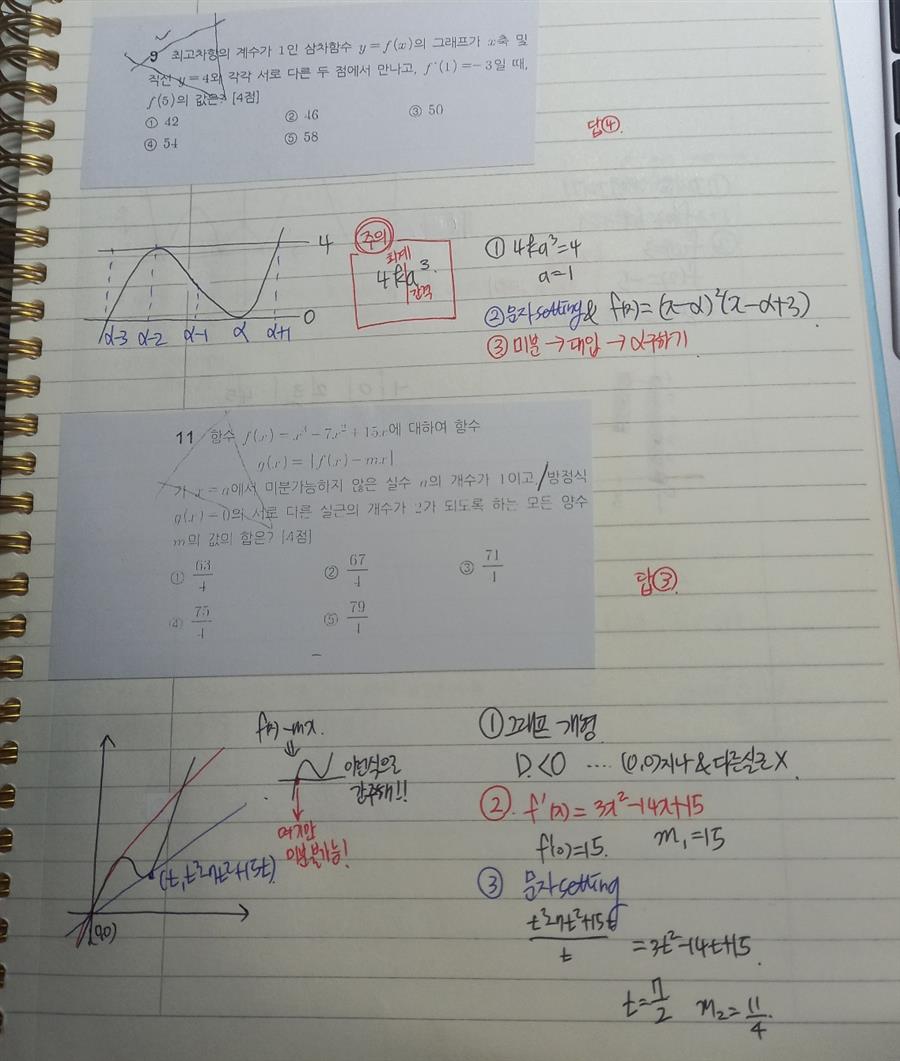 9 최고차항의 계수가 1인 삼차함수 y=f(x)의 그래프가 x축 및
직선 y=4와 각각 서로 다른 두 점에서 만나고, f'(1)=-3일 때,
f(5)의 값은? [4점]
① 42
② 46
③ 50
④ 54
⑤ 58
답④
4
0
α-3 α-2 α-1 α α+1
주의
최계
4ka³
간격
① 4ka³=4
a=1
② 문자 setting & f(x)=(x-α)²(x-α+3)
③ 미분 → 대입 → α구하기
11 함수 f(x)=x³-7x²+15x에 대하여 함수
g(x)=|f(x)-mx|
가 x=a에서 미분가능하지 않은 실수 a의 개수가 1이고/방정식
g(x)=0의 서로 다른 실근의 개수가 2가 되도록 하는 모든 양수
m의 값의 합은? [4점]
① 63/4
② 67/4
③ 71/4
④ 75/4
⑤ 79/4
답③
f(x)-mx
이런식으로
간주해!!
여기만
미분불가능!
(t, t³-7t²+15t)
(0,0)
① 그래프 개형
D<0 .... (0,0)지나&다른실근X
② f'(x)=3x²-14x+15
f'(0)=15. m₁=15
③ 문자 setting
t³-7t²+15t/t =3t²-14t+15
t=7/2 m₂=11/4